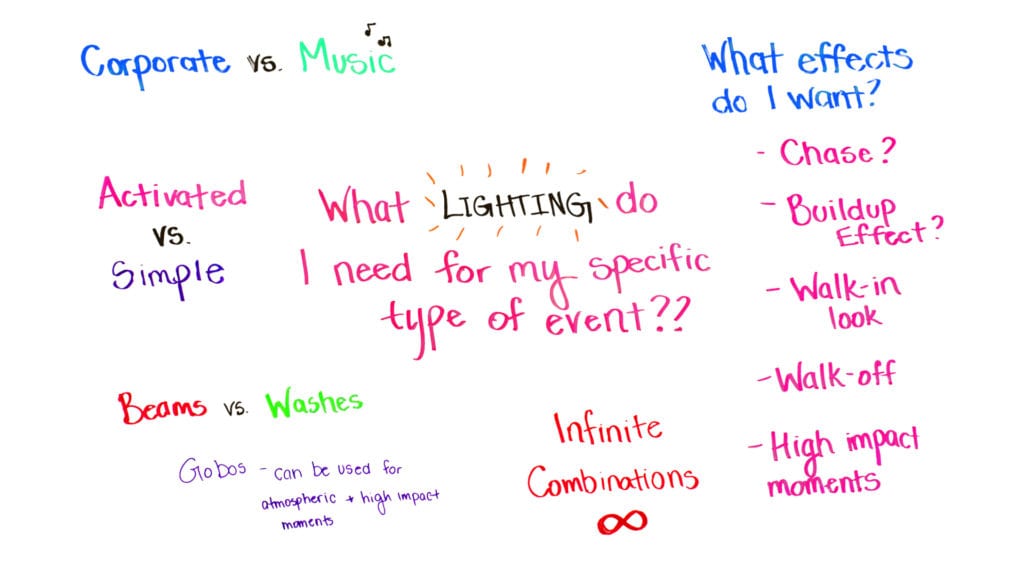 Corporate vs. Music
Activated
vs.
Simple
What LIGHTING do
I need for my specific
type of event??
Beams vs. Washes
Gobos - can be used for
atmospheric + high impact
moments
Infinite
Combinations
∞
What effects
do I want?
- Chase?
- Buildup
Effect?
- Walk-in
look
- Walk-off
- High impact
moments